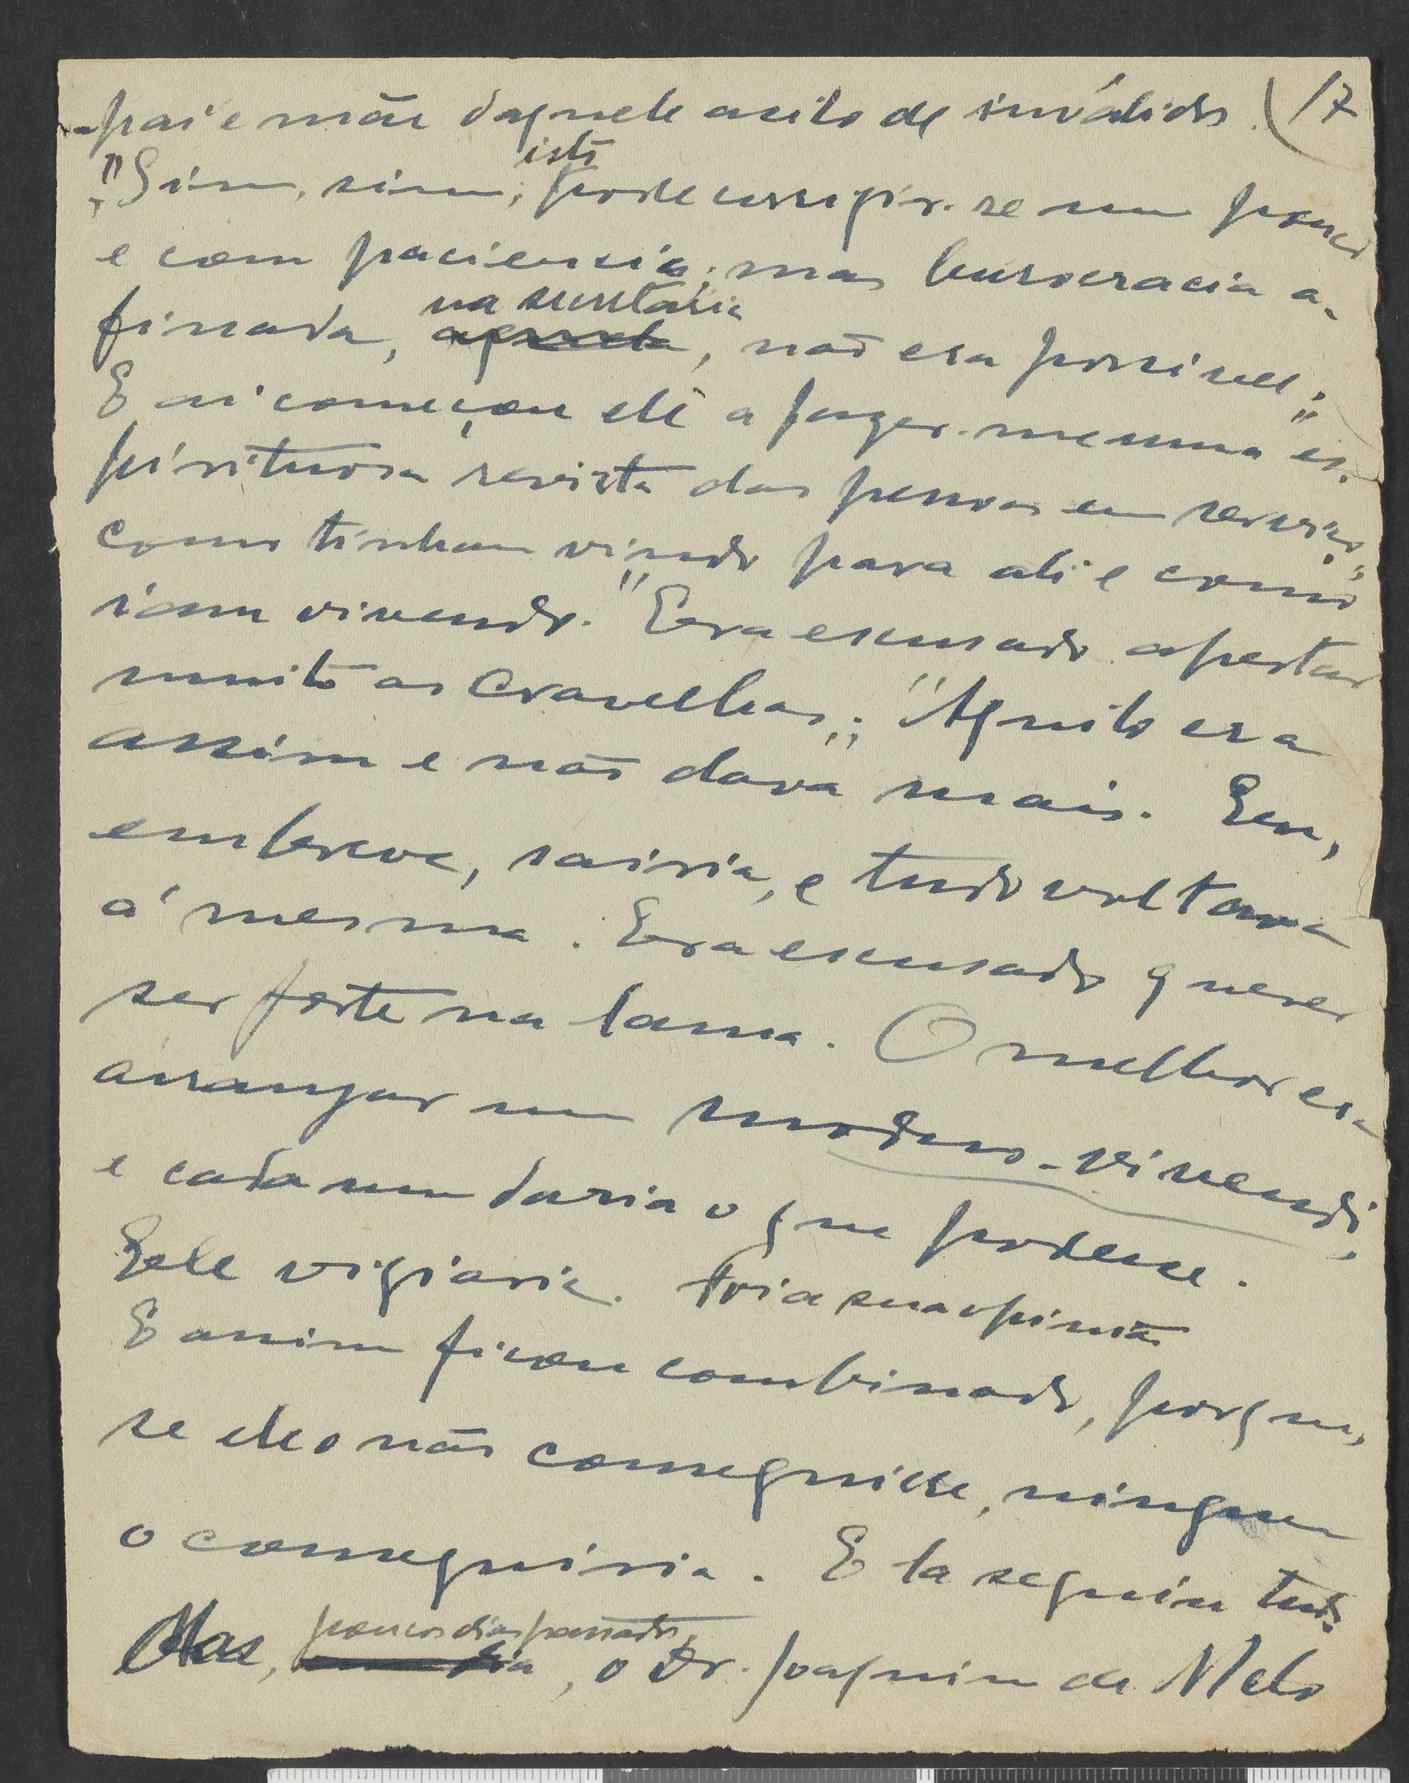 17
-pai e mãe daquele asilo de inválidos.
"Sim, sim, isto pode corrigir-se um pouco
e com paciencia; mas burocracia a-
finada, na secretária aquela, não era possivel";
E ai começou ele a fazer-me uma es-
pirituosa revista das pessoas em serviço,
como tinham vindo para ali e como
iam vivendo. "Era escusado apertar
muito as cravelhas"; "Aquilo era
assim e não dava mais. Eu,
em breve, sairia, e tudo voltava
á mesma. Era escusado querer
ser forte na lama. O melhor era
arranjar um modus-vivendi,
e cada um daria o que podesse.
Ele vigiaria. Foi a sua opinião
E assim ficou combinado, porque,
se ele o não conseguisse, ninguem
o conseguiria. E la seguiu tudo.
Mas, poucos dias passados, um dia, o Dr. Joaquim de Melo